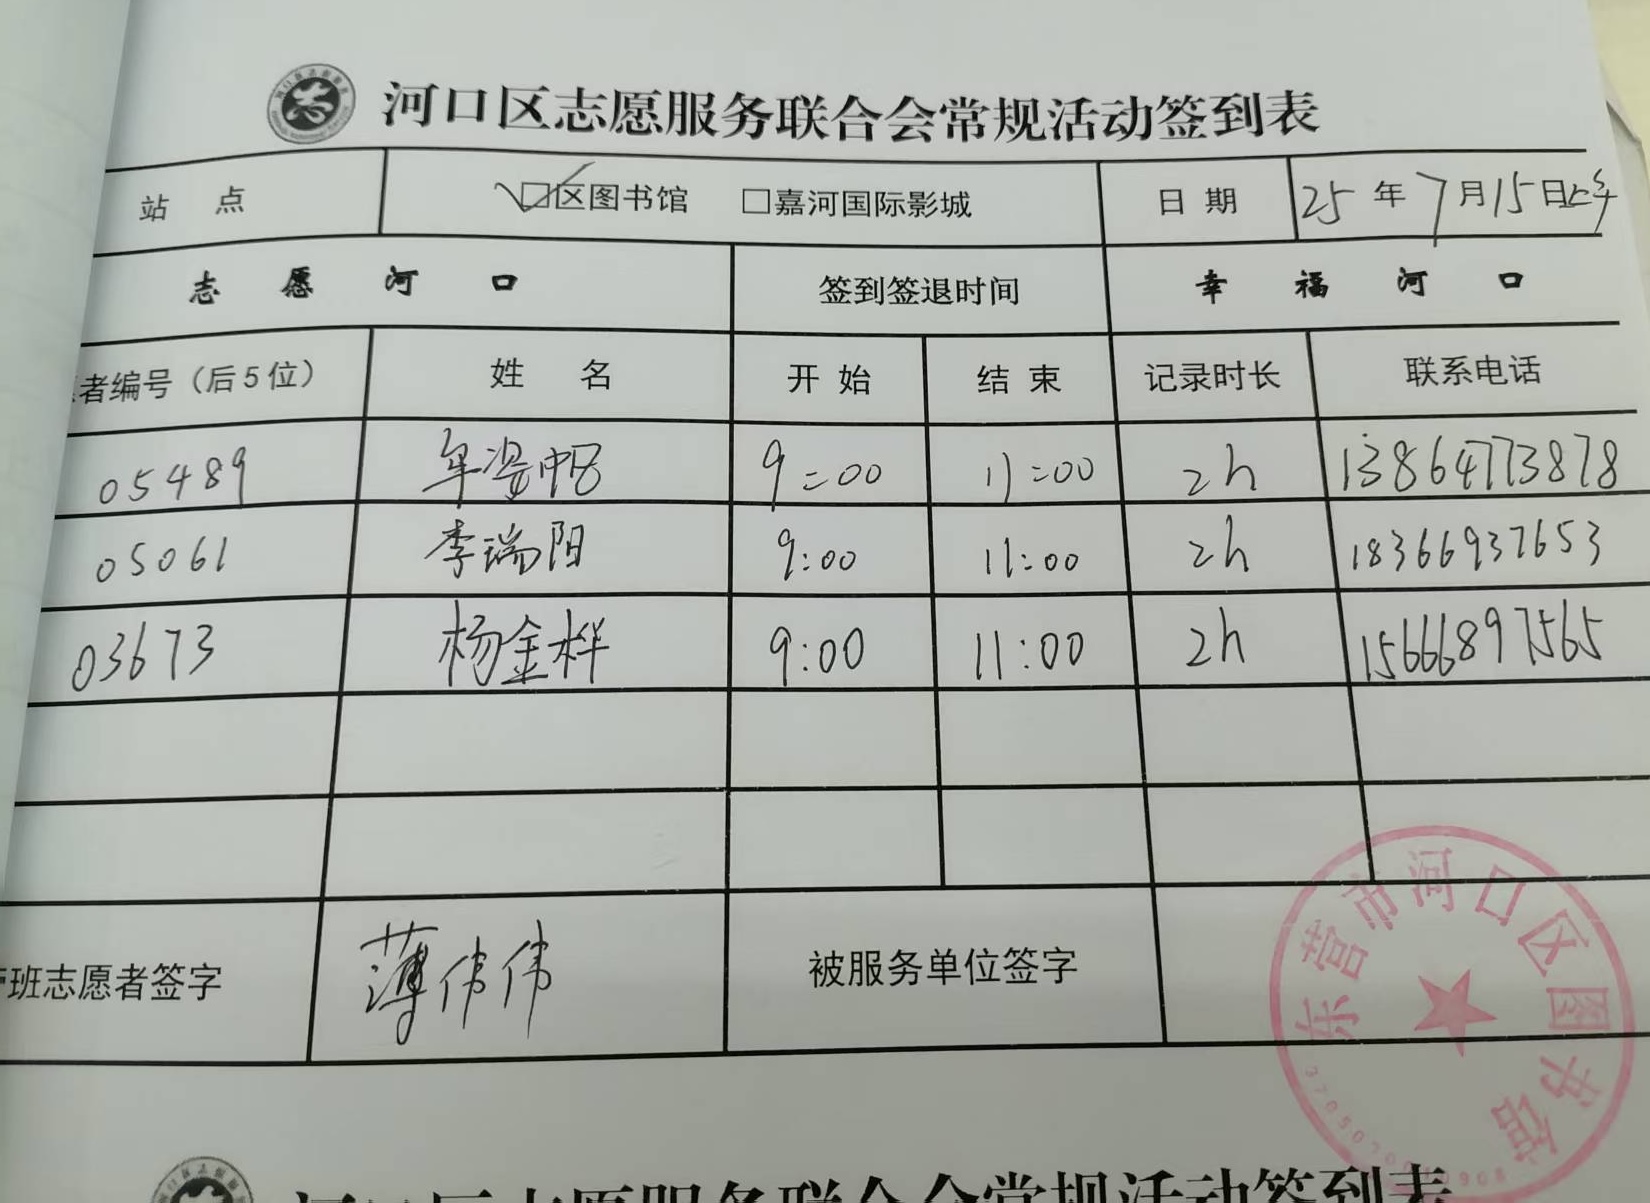 河口区志愿服务联合会常规活动签到表
站 点 □区图书馆 □嘉河国际影城 日 期 25年7月15日上午
志 愿 河 口 签到签退时间 幸 福 河 口
者编号（后5位） 姓 名 开 始 结 束 记录时长 联系电话
05489 牟姿 9:00 11:00 2h 13864773878
05061 李瑞阳 9:00 11:00 2h 18366937653
03673 杨金桦 9:00 11:00 2h 15666897565
班志愿者签字 薄伟伟 被服务单位签字
东营市河口区图书馆
河口区志愿服务联合会常规活动签到表